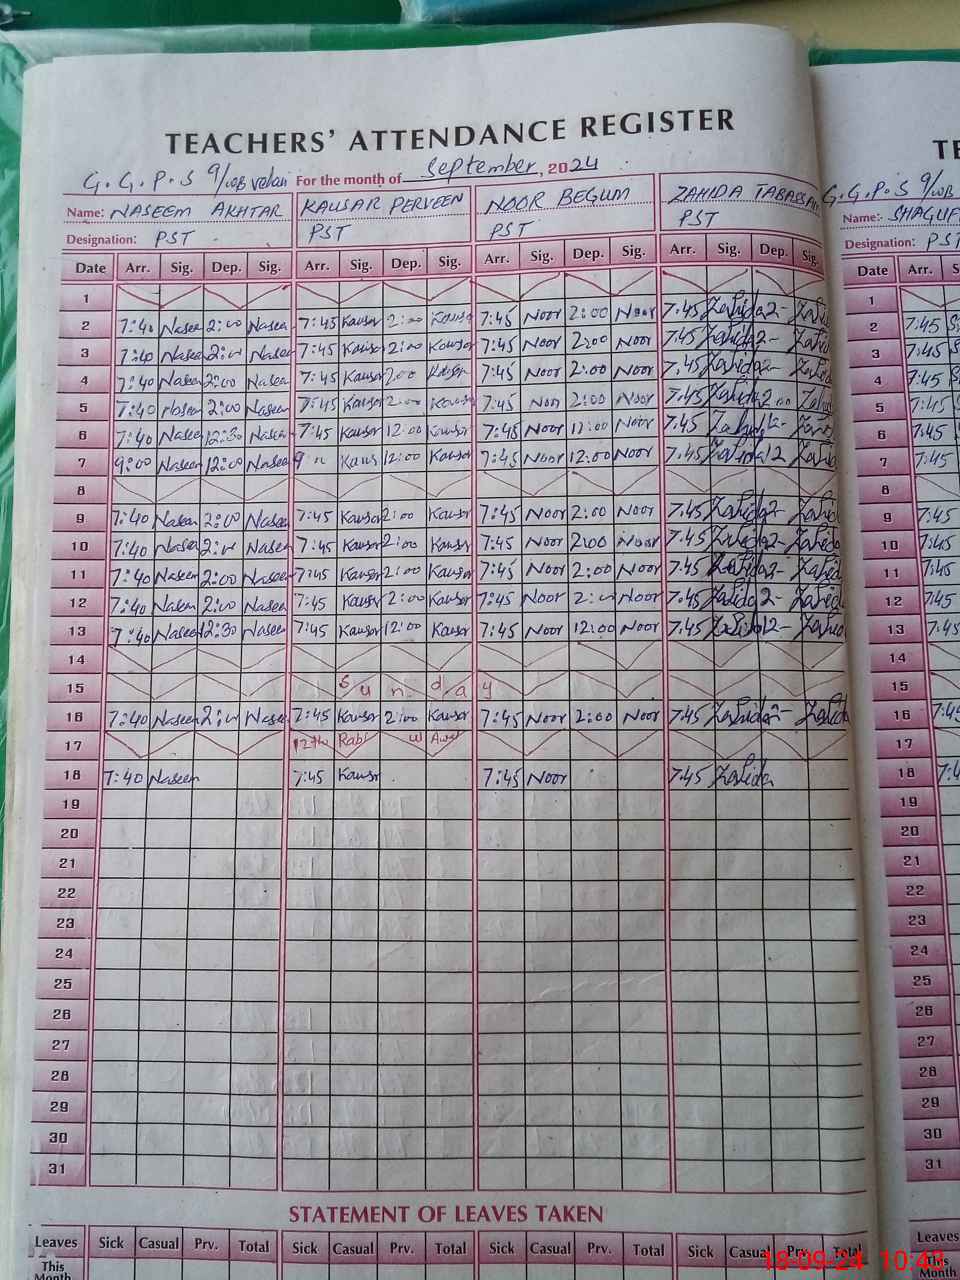 TEACHERS' ATTENDANCE REGISTER
TE
G.G.P.S 9/WB vehari For the month of September, 2024
G.G.P.S 9/WB
Name: NASEEM AKHTAR KAUSAR PERVEEN NOOR BEGUM ZAHIDA TABASSAM
Name:- SHAGUF
Designation: PST PST PST PST
Designation: PST
Date Arr. Sig. Dep. Sig. Arr. Sig. Dep. Sig. Arr. Sig. Dep. Sig. Arr. Sig. Dep. Sig. Date Arr. S
1 1
2 7:40 Naseem 2:00 Naseem 7:45 Kausar 2:00 Kausar 7:45 Noor 2:00 Noor 7.45 Zahida 2- Zahida 2 7:45
3 7:40 Naseem 2:00 Naseem 7:45 Kausar 2:00 Kausar 7:45 Noor 2:00 Noor 7.45 Zahida 2- Zahida 3 7:45
4 7:40 Naseem 2:00 Naseem 7:45 Kausar 2:00 Kausar 7:45 Noor 2:00 Noor 7.45 Zahida 2- Zahida 4 7:45
5 7:40 Naseem 2:00 Naseem 7:45 Kausar 2:00 Kausar 7:45 Noor 2:00 Noor 7.45 Zahida 2.00 Zahida 5 7:45
6 7:40 Naseem 12:30 Naseem 7:45 Kausar 12:00 Kausar 7:45 Noor 12:00 Noor 7.45 Zahida 12- Zahida 6 7:45
7 9:00 Naseem 12:00 Naseem 9 Kausar 12:00 Kausar 7:45 Noor 12:00 Noor 7.45 Zahida 12- Zahida 7 7:45
8 8
9 7:40 Naseem 2:00 Naseem 7:45 Kausar 2:00 Kausar 7:45 Noor 2:00 Noor 7.45 Zahida 2- Zahida 9 7:45
10 7:40 Naseem 2:00 Naseem 7:45 Kausar 2:00 Kausar 7:45 Noor 2:00 Noor 7.45 Zahida 2- Zahida 10 7:45
11 7:40 Naseem 2:00 Naseem 7:45 Kausar 2:00 Kausar 7:45 Noor 2:00 Noor 7.45 Zahida 2- Zahida 11 7:45
12 7:40 Naseem 2:00 Naseem 7:45 Kausar 2:00 Kausar 7:45 Noor 2:00 Noor 7.45 Zahida 2- Zahida 12 7:45
13 7:40 Naseem 12:30 Naseem 7:45 Kausar 12:00 Kausar 7:45 Noor 12:00 Noor 7.45 Zahida 12- Zahida 13 7:45
14 14
15 Sunday 15
16 7:40 Naseem 2:00 Naseem 7:45 Kausar 2:00 Kausar 7:45 Noor 2:00 Noor 7.45 Zahida 2- Zahida 16 7:45
17 12th Rabi ul Awal 17
18 7:40 Naseem 7:45 Kausar 7:45 Noor 7.45 Zahida 18
19 19
20 20
21 21
22 22
23 23
24 24
25 25
26 26
27 27
28 28
29 29
30 30
31 31
STATEMENT OF LEAVES TAKEN
Leaves Sick Casual Prv. Total Sick Casual Prv. Total Sick Casual Prv. Total Sick Casual Prv. Total Leaves
This Month This Month
18-09-24 10:43